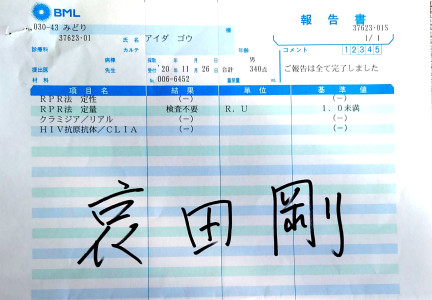 BML
報告書
030-43 みどり
様
37623-01S
37623-01
アイダ ゴウ
1/ 1
診療科
カルテ
年齢
コメント
1 2 3 4 5
病棟
男
提出医
先生
受付 '20年 11月 26日
合計 340点
ご報告は全て完了しました
材料
No. 006-6452
項目名 結果 単位 基準値
RPR法 定性 (-) (-)
RPR法 定量 検査不要 R.U 1.0未満
クラミジア/リアル (-) (-)
HIV抗原抗体/CLIA (-) (-)
哀田剛